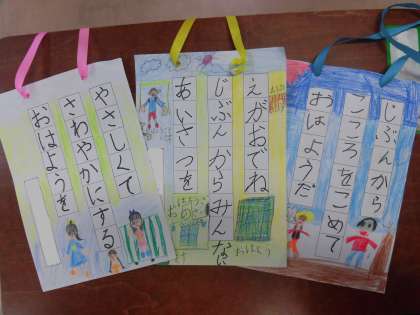 やさしくて
さわやかにする
おはようを
えがおでね
じぶんからみんなに
あいさつを
おはよう
じぶんから
こころをこめて
おはようだ